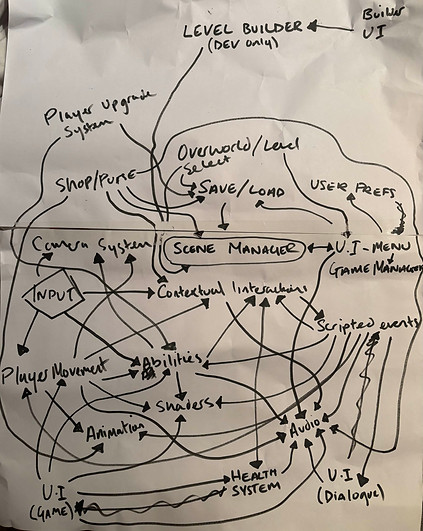 LEVEL BUILDER
(DEV only)
Builder
UI
Player Upgrade
System
Overworld/Level
Select
SHOP/PURSE
SAVE/LOAD
USER PREFS
Camera System
SCENE MANAGER
U.I-MENU
GAME MANAGER
INPUT
Contextual Interactions
Scripted events
Player Movement
Abilities
Shaders
Animation
Audio
HEALTH
SYSTEM
U.I
(GAME)
U.I
(Dialogue)